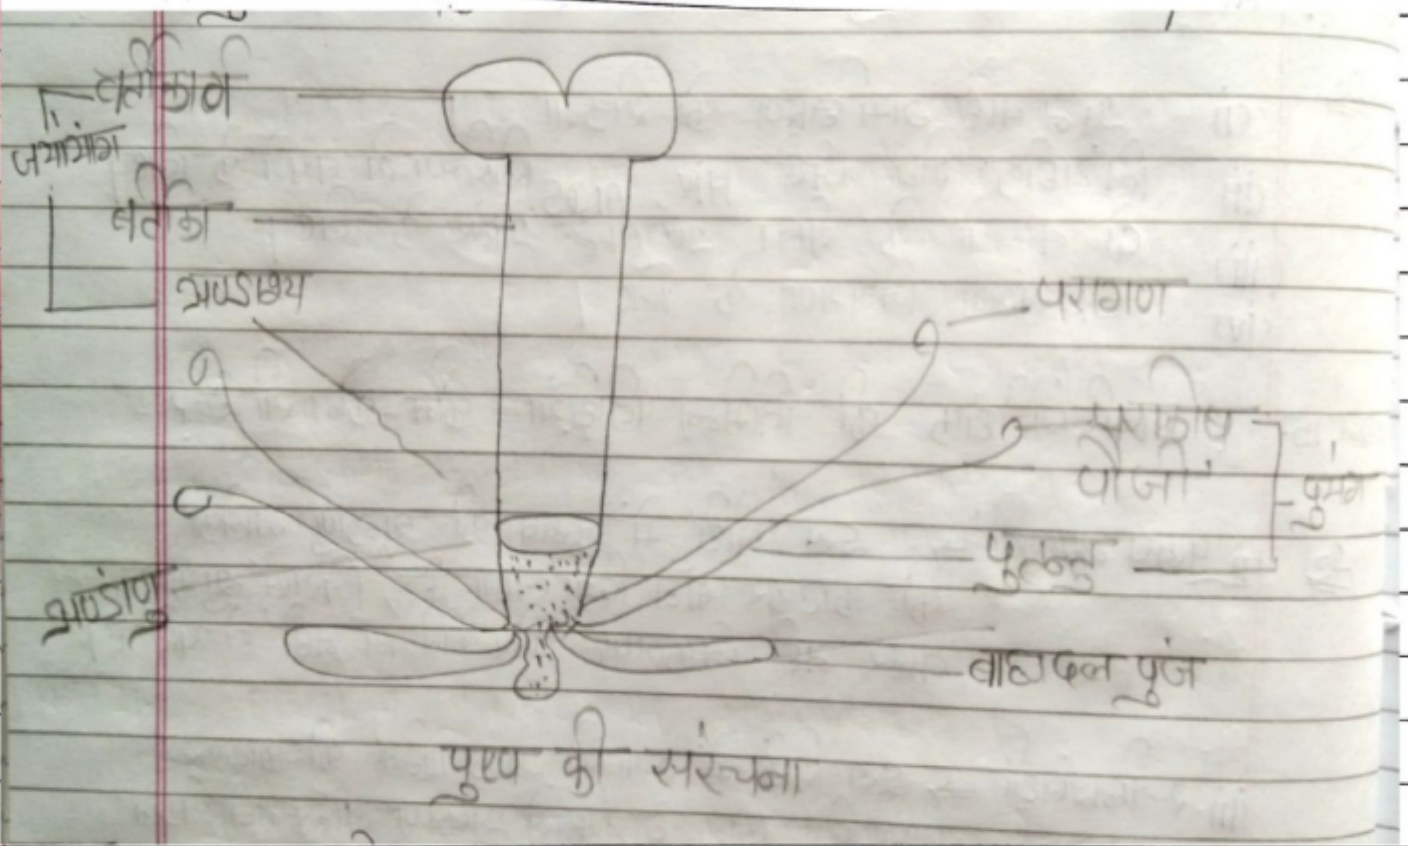 वर्तिकाग्र
जायांग
वर्तिका
अण्डाशय
परागण
पुमंग
पुतन्तु
अण्डाणु
बाह्यदल पुंज
पुष्प की संरचना